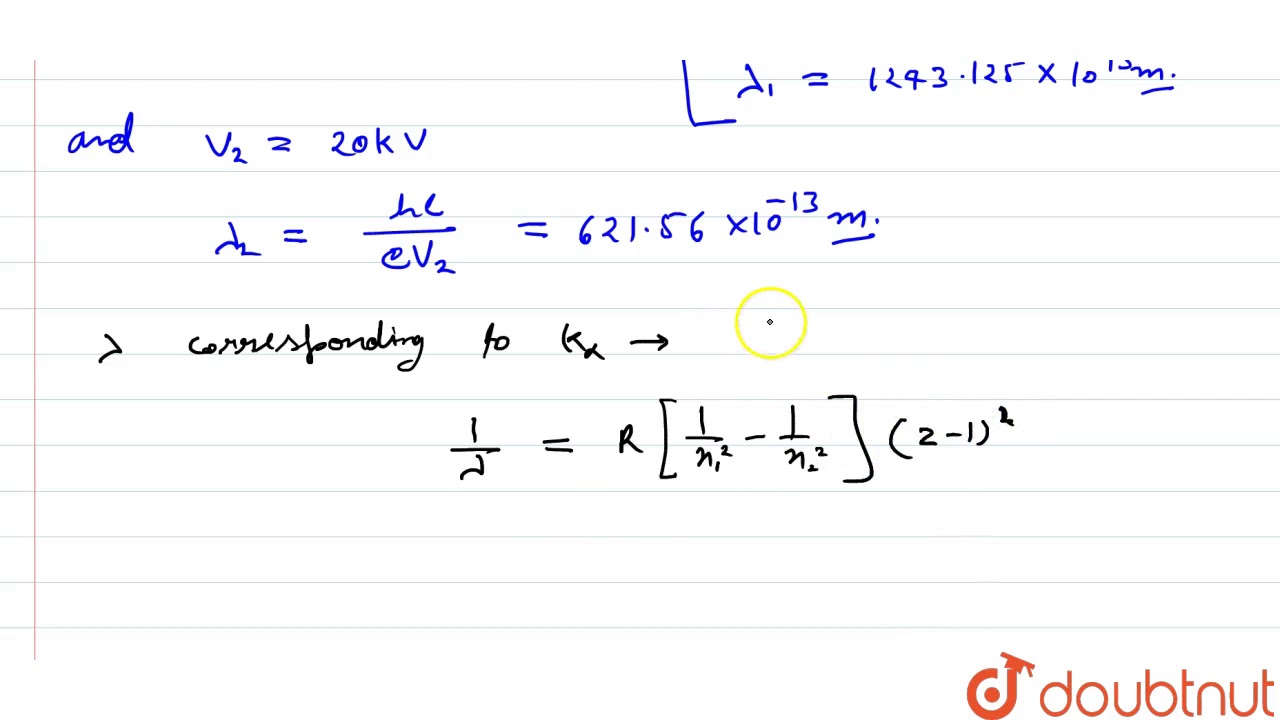 λ₁ = 1243.125 × 10¹³m.
and V₂ = 20kV
λ₂ = hc/eV₂ = 621.56 × 10⁻¹³ m.
λ corresponding to kα →
1/λ = R [1/n₁² − 1/n₂²] (z−1)²
doubtnut